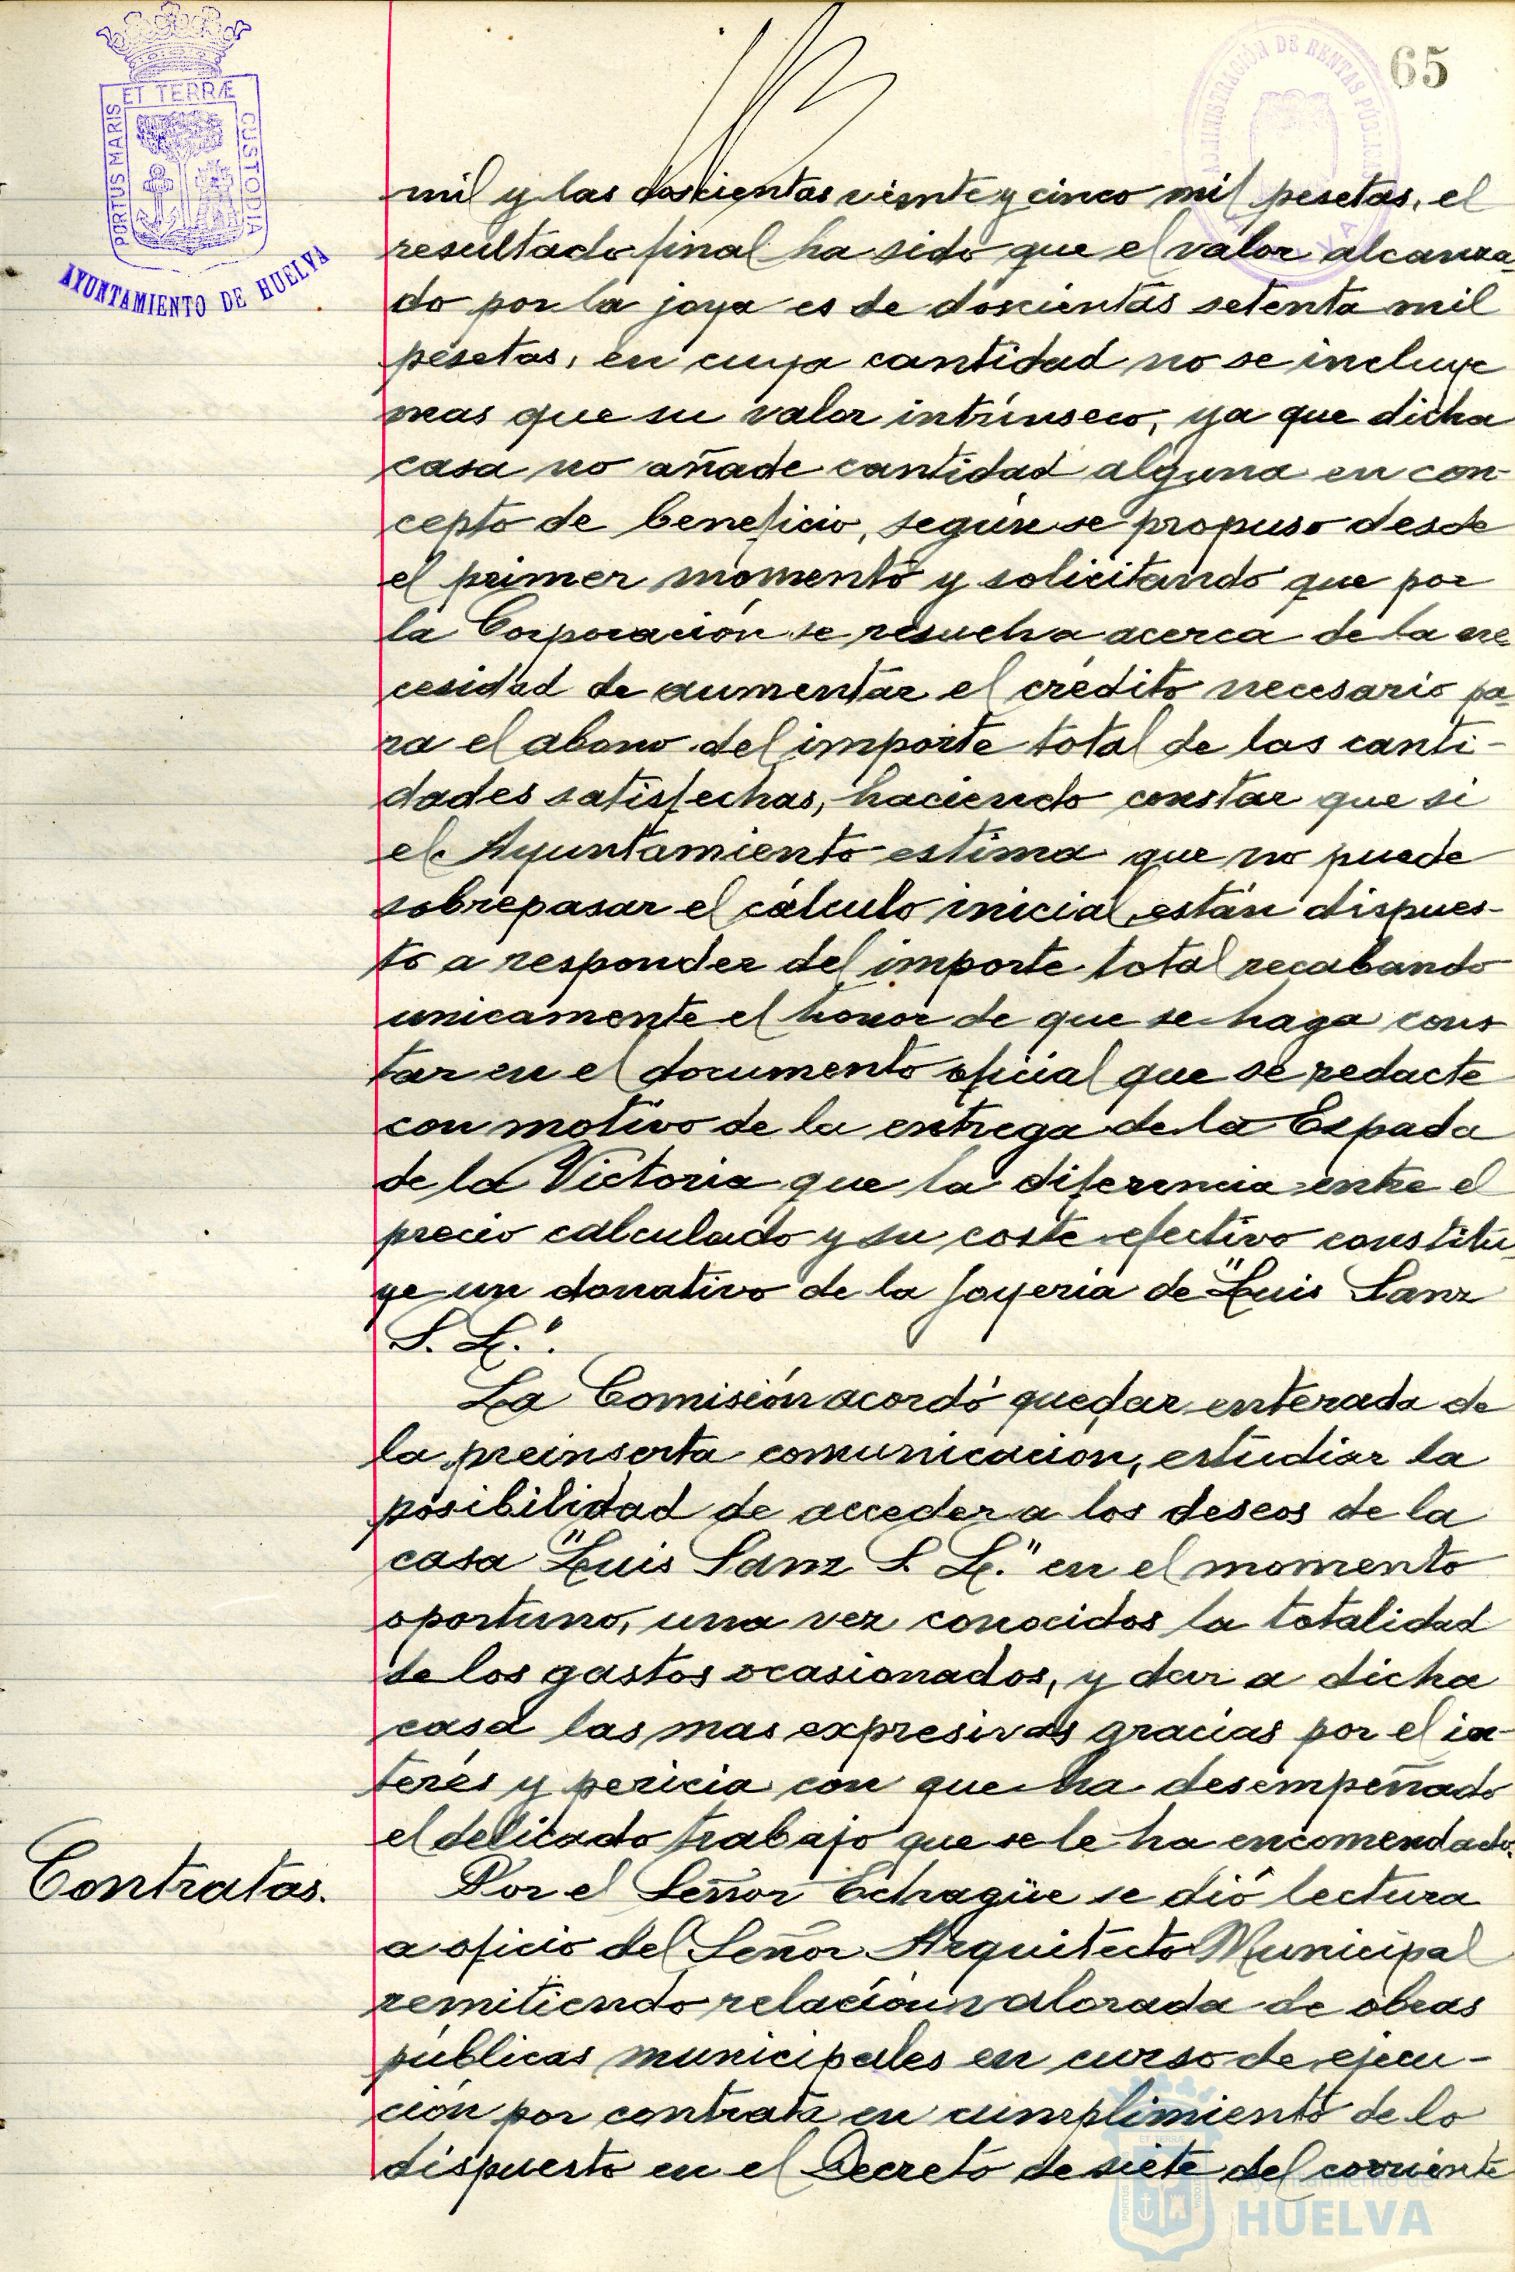 65
ET TERRÆ
PORTUS MARIS
CUSTODIA
AYUNTAMIENTO DE HUELVA
ADMINISTRACIÓN DE RENTAS PÚBLICAS
mil y las doscientas veinte y cinco mil pesetas, el
resultado final ha sido que el valor alcanza-
do por la joya es de doscientas setenta mil
pesetas, en cuya cantidad no se incluye
mas que su valor intrínseco, ya que dicha
casa no añade cantidad alguna en con-
cepto de beneficio, según se propuso desde
el primer momento y solicitando que por
la Corporación se resuelva acerca de la ne
cesidad de aumentar el crédito necesario pa-
ra el abono del importe total de las canti-
dades satisfechas, haciendo constar que si
el Ayuntamiento estima que no puede
sobrepasar el cálculo inicial, están dispues-
to a responder del importe total recabando
unicamente el honor de que se haga cons
tar en el documento oficial que se redacte
con motivo de la entrega de la Espada
de la Victoria que la diferencia entre el
precio calculado y su coste efectivo constitu-
ye un donativo de la Joyería de "Luis Sanz
S. L.".
La Comisión acordó quedar enterada de
la preinserta comunicación, estudiar la
posibilidad de acceder a los deseos de la
casa "Luis Sanz S. L." en el momento
oportuno, una vez conocidos la totalidad
de los gastos ocasionados, y dar a dicha
casa las mas expresivas gracias por el in-
terés y pericia con que ha desempeñado
el delicado trabajo que se le ha encomendado.
Contratas.
Por el Señor Echagüe se dió lectura
a oficio del Señor Arquitecto Municipal
remitiendo relación valorada de obras
públicas municipales en curso de ejecu-
ción por contrata en cumplimiento de lo
dispuesto en el Decreto de siete del corriente
Ayuntamiento de
HUELVA